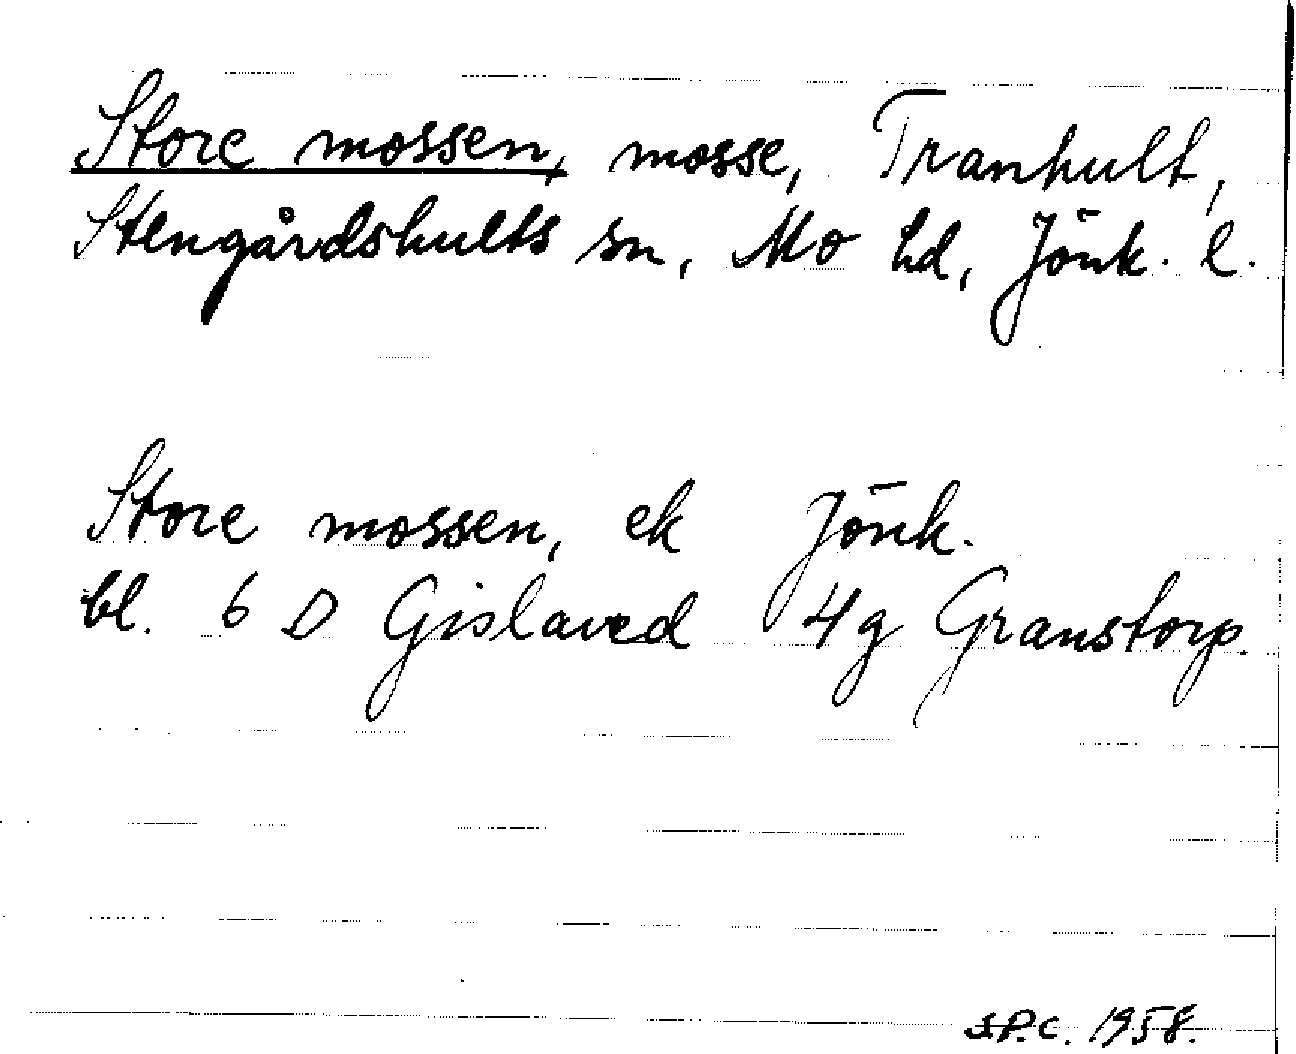 Store mossen, mosse, Tranhult,
Stengårdshults sn, Mo hd, Jönk. l.
Store mossen, ek Jönk.
bl. 6 D Gislaved 4g Granstorp.
S.P.C. 1958.